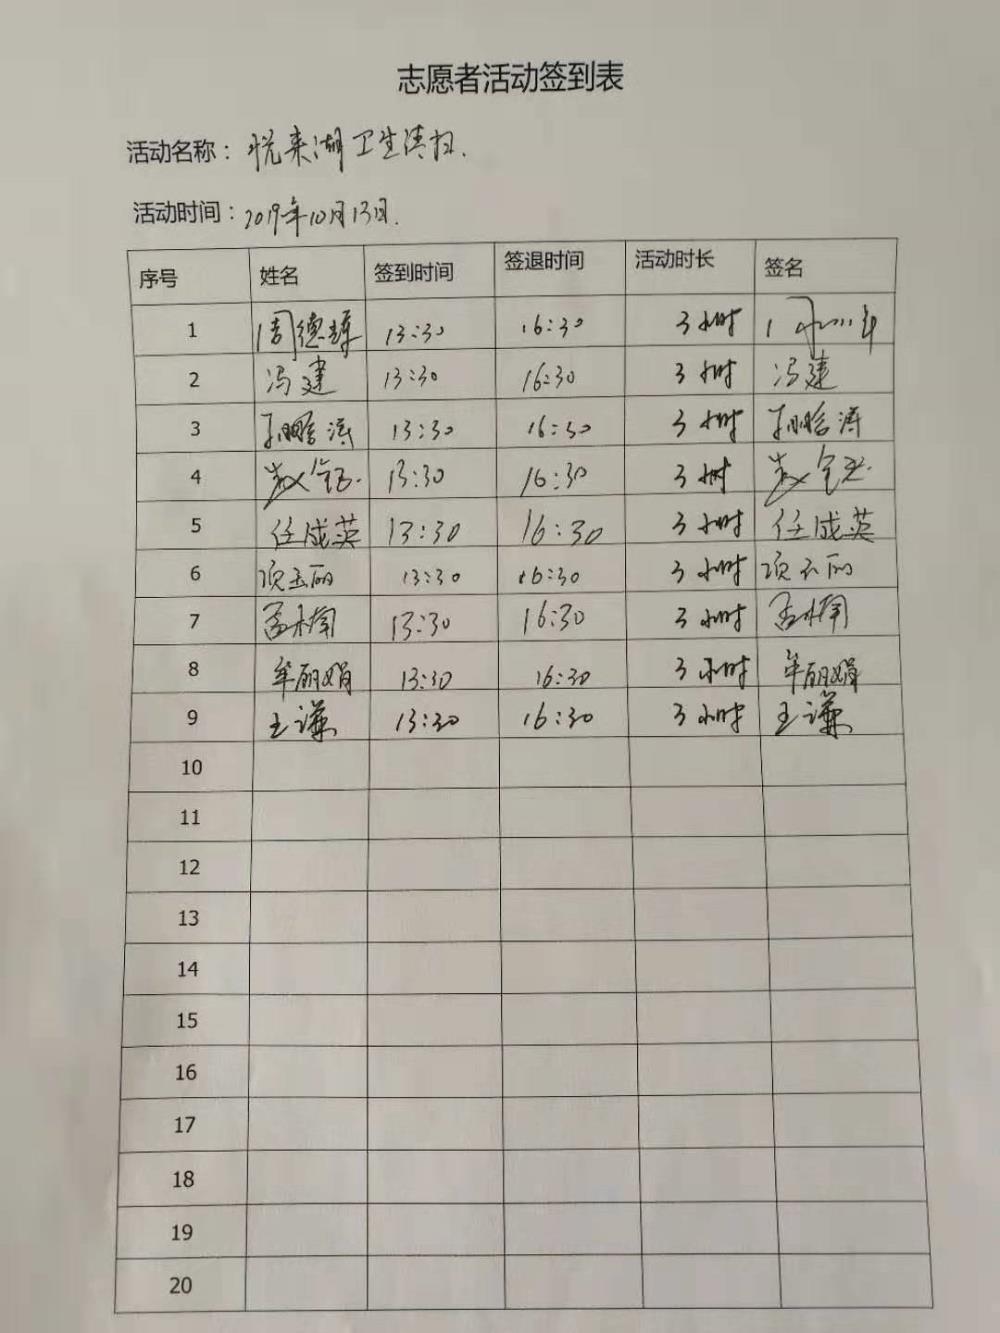 志愿者活动签到表
活动名称：悦来湖卫生清扫.
活动时间：2019年10月13日.
序号 姓名 签到时间 签退时间 活动时长 签名
1 周德 13:30 16:30 3小时
2 冯建 13:30 16:30 3小时 冯建
3 孙鹏涛 13:30 16:30 3小时 孙鹏涛
4 赵 13:30 16:30 3小时 赵
5 任成英 13:30 16:30 3小时 任成英
6 项玉丽 13:30 16:30 3小时 项玉丽
7 孟楠 13:30 16:30 3小时 孟楠
8 牟丽娟 13:30 16:30 3小时 牟丽娟
9 王谦 13:30 16:30 3小时 王谦
10
11
12
13
14
15
16
17
18
19
20